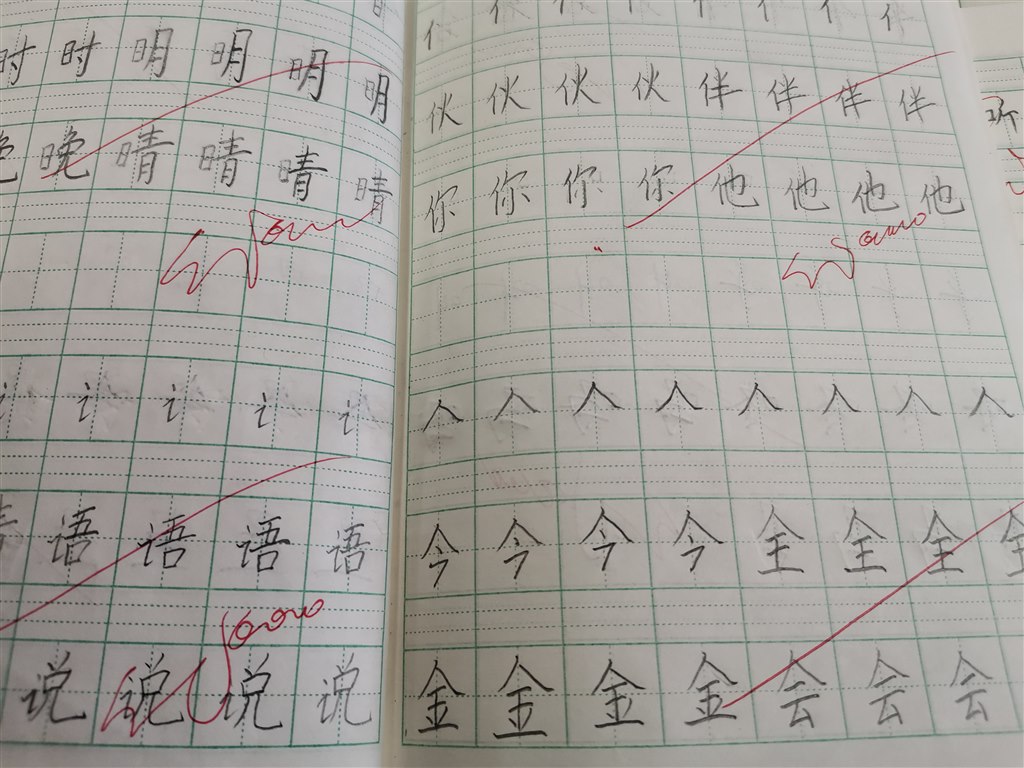 时 时 明 明 明 明
晚 晴 晴 晴 晴
讠 讠 讠 讠 讠
语 语 语 语
说 说 说 说
伙 伙 伙 伙 伴 伴 伴 伴
你 你 你 你 他 他 他 他
人 人 人 人 人 人 人 人
今 今 今 今 全 全 全 全
金 金 金 金 会 会 会